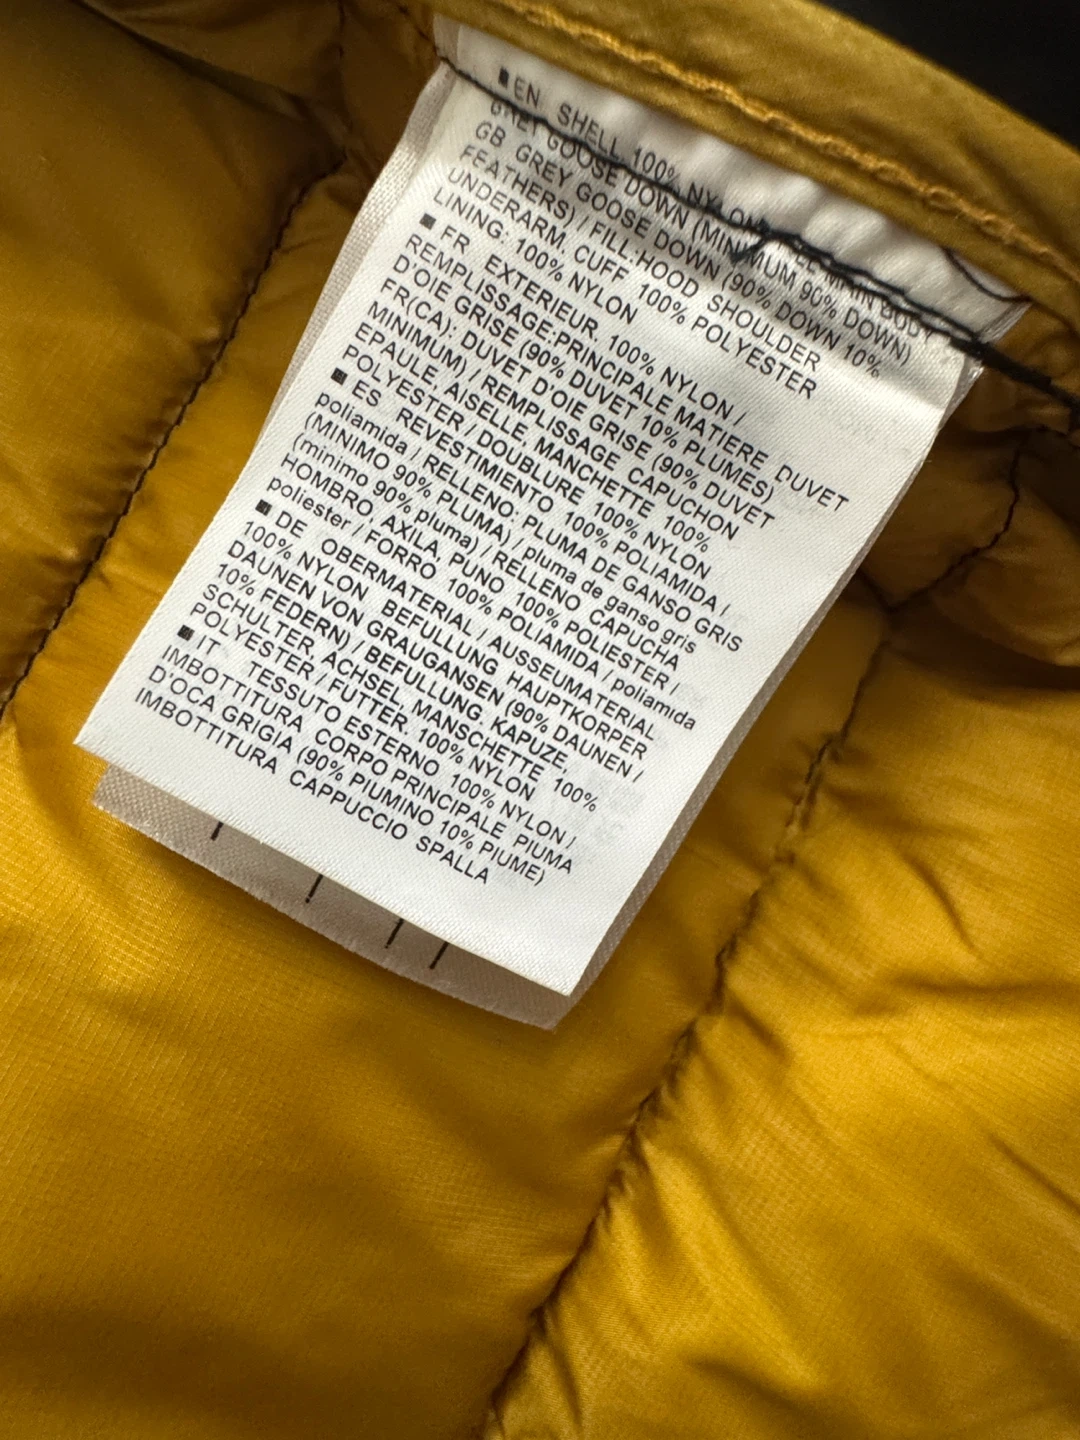 ■ EN SHELL 100% NYLON
GREY GOOSE DOWN (MINIMUM 90% DOWN)
GB GREY GOOSE DOWN (90% DOWN 10%
FEATHERS) / FILL:HOOD SHOULDER
UNDERARM, CUFF 100% POLYESTER
LINING: 100% NYLON
■ FR EXTERIEUR 100% NYLON /
REMPLISSAGE:PRINCIPALE MATIERE DUVET
D'OIE GRISE (90% DUVET 10% PLUMES)
FR(CA): DUVET D'OIE GRISE (90% DUVET
MINIMUM) / REMPLISSAGE CAPUCHON
EPAULE, AISELLE, MANCHETTE 100%
POLYESTER / DOUBLURE 100% NYLON
■ ES REVESTIMIENTO 100% POLIAMIDA /
poliamida / RELLENO: PLUMA DE GANSO GRIS
(MINIMO 90% PLUMA) / pluma de ganso gris
(minimo 90% pluma) / RELLENO CAPUCHA
HOMBRO, AXILA, PUNO 100% POLIESTER /
poliester / FORRO 100% POLIAMIDA / poliamida
■ DE OBERMATERIAL / AUSSEUMATERIAL
100% NYLON BEFULLUNG HAUPTKORPER
DAUNEN VON GRAUGANSEN (90% DAUNEN /
10% FEDERN) / BEFULLUNG. KAPUZE,
SCHULTER, ACHSEL, MANSCHETTE 100%
POLYESTER / FUTTER. 100% NYLON
■ IT TESSUTO ESTERNO 100% NYLON /
IMBOTTITURA CORPO PRINCIPALE PIUMA
D'OCA GRIGIA (90% PIUMINO 10% PIUME)
IMBOTTITURA CAPPUCCIO SPALLA